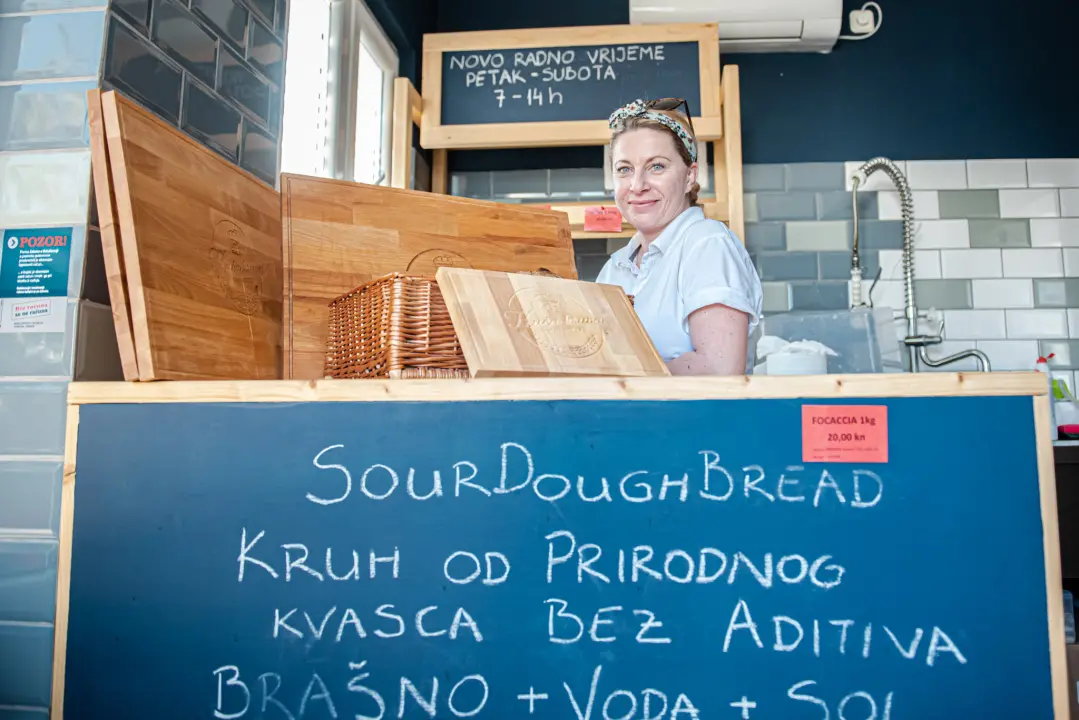 NOVO RADNO VRIJEME
PETAK - SUBOTA
7 - 14 h
POZOR!
FOCACCIA 1kg
20,00 kn
SOURDOUGHBREAD
KRUH OD PRIRODNOG
KVASCA BEZ ADITIVA
BRAŠNO + VODA + SOL